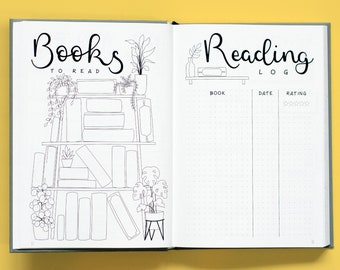 Books
TO READ
Reading
LOG
BOOK DATE RATING